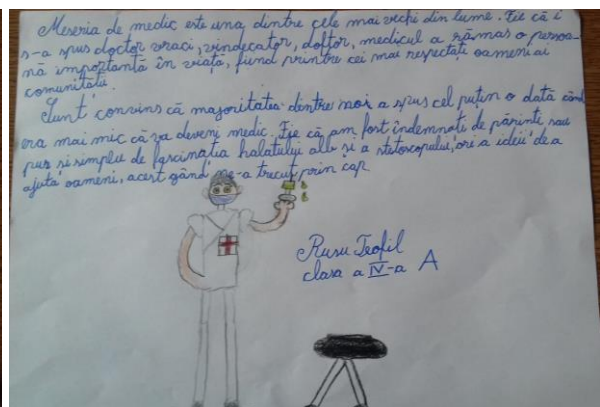 Meseria de medic este una dintre cele mai vechi din lume. Fie că i
s-a spus doctor vraci, vindecator, doftor, medicul a rămas o persoa-
nă importantă în viață, fiind printre cei mai respectați oameni ai
comunității.
Sunt convins că majoritatea dintre noi a spus cel puțin o dată când
era mai mic că va deveni medic. Fie că am fost îndemnați de părinte sau
pur și simplu de fascinația halatului alb și a stetoscopului, ori a ideii de a
ajuta oameni, acest gând ne-a trecut prin cap.
Rusu Teofil
clasa a IV-a A